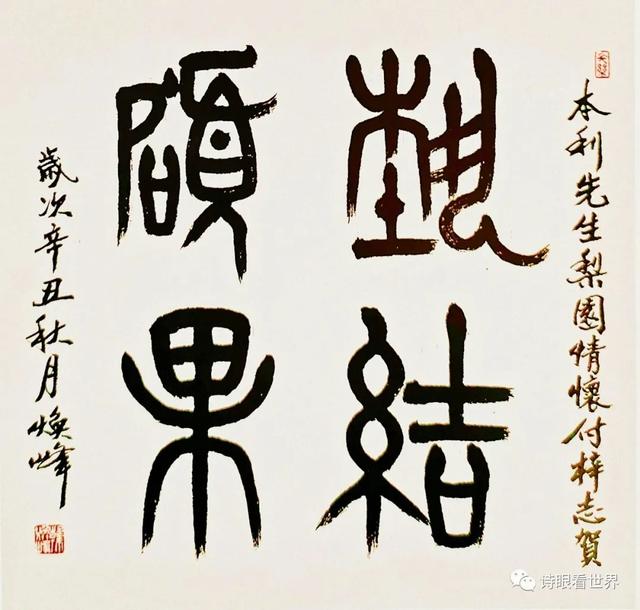 本利先生梨園情懷付梓志賀
埶結
碩果
歲次辛丑秋月焕峰
诗眼看世界